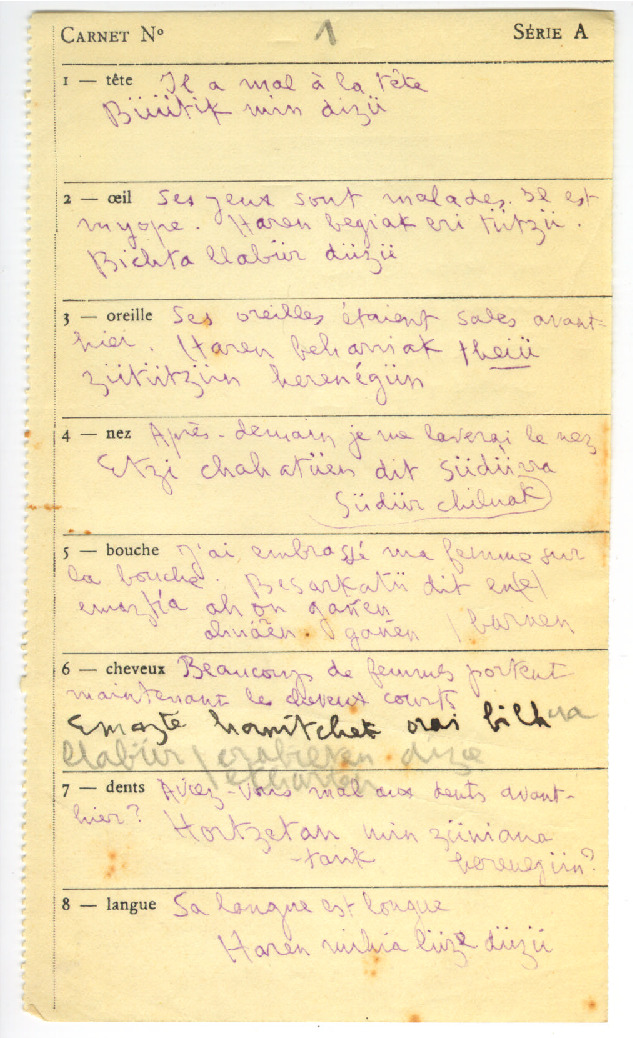 CARNET Nº 1 SÉRIE A
1 — tête Il a mal à la tête
Büüitik min dizü
2 — œil Ses yeux sont malades. Il est
myope. Haren begiak eri tützü.
Bichta llabür düzü
3 — oreille Ses oreilles étaient sales avant-
hier. Haren beharriak theiü
zütützün herenégün
4 — nez Après-demain je me laverai le nez
Etzi chahatüen dit südürra
südür chiluak
5 — bouche J'ai embrassé ma femme sur
la bouche. Besarkatü dit ene
emaztia ahon gañen
gañen / barnen
6 — cheveux Beaucoup de femmes portent
maintenant les cheveux courts
Emazte hanitchek orai bilhua
llabür / dize
ekharten
7 — dents Aviez-vous mal aux dents avant-
hier? Hortzetan min züniana
-tarik herenegün?
8 — langue Sa langue est longue
Haren mihia lüze düzü